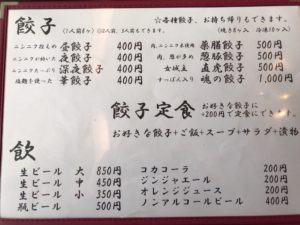 餃子 (1人前6ケ) ☆各種餃子、お持ち帰りもできます。
(焼き8ケ入 冷凍10ケ入)
ニンニク控えめ 昼餃子 400円
ニンニクが効いた 夜餃子 400円
ニンニクたっぷり 深夜餃子 400円
塩麹を使った 華餃子 400円
肉、ニンニク不使用 薬膳餃子 500円
肉、葱が多め 葱豚餃子 500円
女城主 直虎餃子 500円
すっぽん入り 魂の餃子 1,000円
餃子定食 お好きな餃子に
+200円で定食にできます。
お好きな餃子+ご飯+スープ+サラダ+漬物
飲
生ビール 大 850円
生ビール 中 450円
生ビール 小 350円
瓶ビール 500円
コカコーラ 200円
ジンジャエール 200円
オレンジジュース 200円
ノンアルコールビール 400円